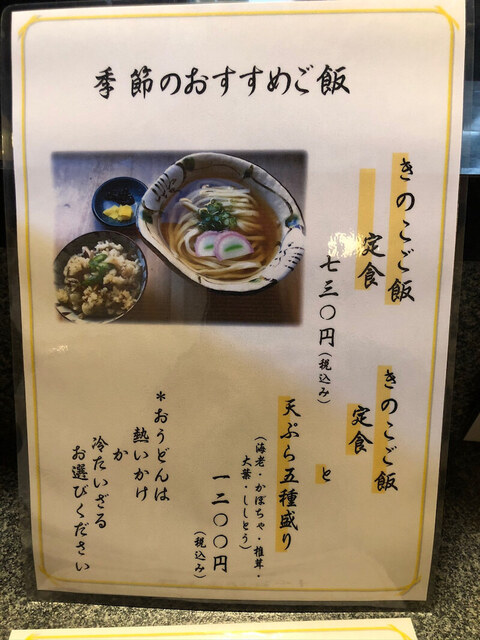 季節のおすすめご飯
きのこご飯
定食
七三〇円(税込み)
きのこご飯
定食
と
天ぷら五種盛り
(海老・かぼちゃ・椎茸・
大葉・ししとう)
一二〇〇円
(税込み)
*おうどんは
熱いかけ
か
冷たいざる
お選びください